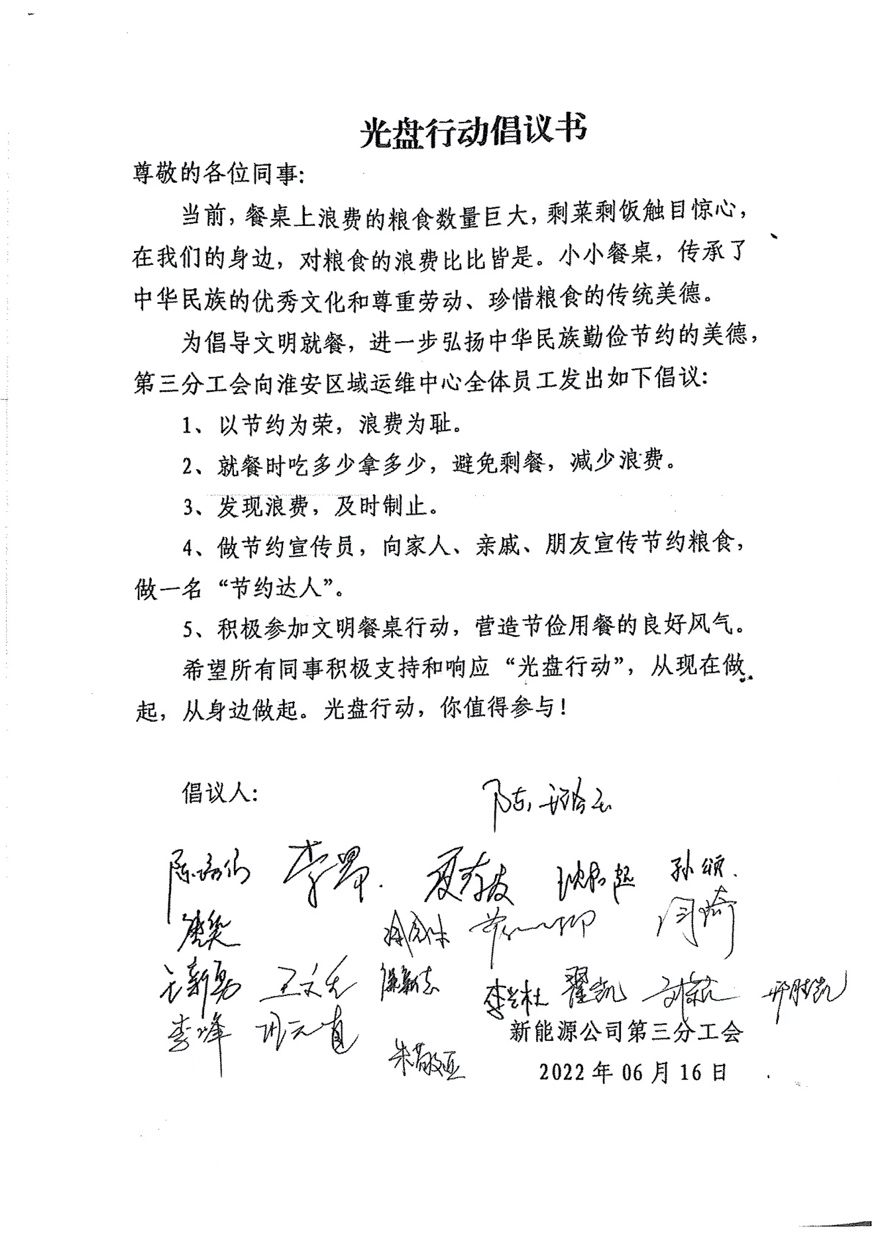 光盘行动倡议书
尊敬的各位同事：
当前，餐桌上浪费的粮食数量巨大，剩菜剩饭触目惊心，
在我们的身边，对粮食的浪费比比皆是。小小餐桌，传承了
中华民族的优秀文化和尊重劳动、珍惜粮食的传统美德。
为倡导文明就餐，进一步弘扬中华民族勤俭节约的美德，
第三分工会向淮安区域运维中心全体员工发出如下倡议：
1、以节约为荣，浪费为耻。
2、就餐时吃多少拿多少，避免剩餐，减少浪费。
3、发现浪费，及时制止。
4、做节约宣传员，向家人、亲戚、朋友宣传节约粮食，
做一名“节约达人”。
5、积极参加文明餐桌行动，营造节俭用餐的良好风气。
希望所有同事积极支持和响应“光盘行动”，从现在做
起，从身边做起。光盘行动，你值得参与！
倡议人：
孙颂
翟凯
李峰
新能源公司第三分工会
朱敬亚
2022 年 06 月 16 日